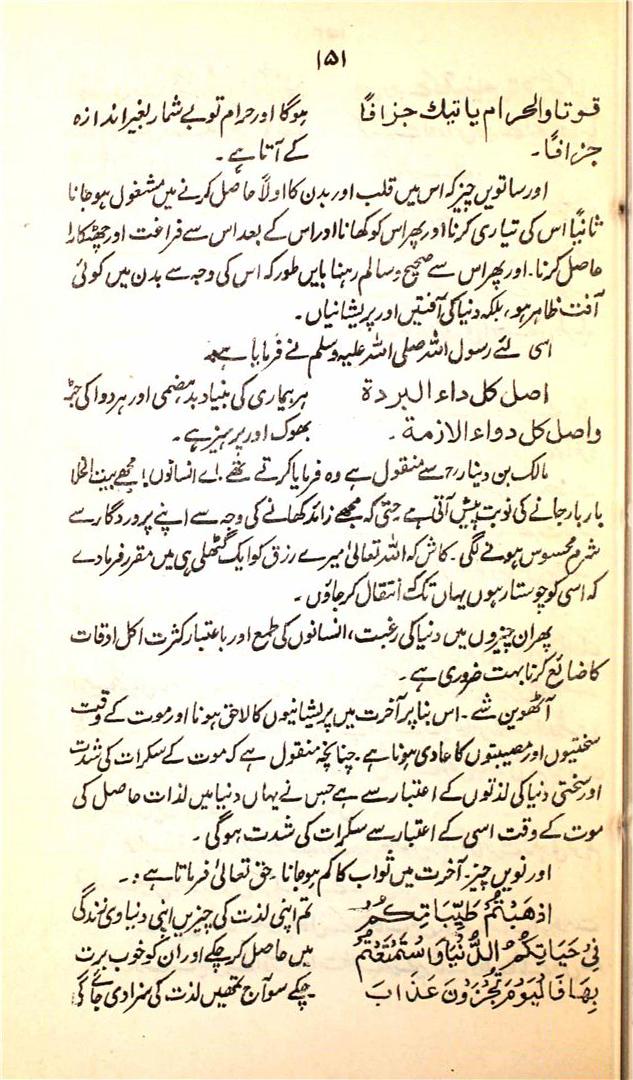 ۱۵۱
قوتا والحرام یاتیك جزافًا ہوگا اور حرام تو بے شمار بغیر اندازہ
جزافًا۔ کے آتا ہے۔
اور ساتویں چیز کہ اس میں قلب اور بدن کا اولاً حاصل کرنے میں مشغول ہو جانا
ثانیًا اس کی تیاری کرنا اور پھر اس کو کھانا اور اس کے بعد اس سے فراغت اور چھٹکارا
حاصل کرنا۔ اور پھر اس سے صحیح و سالم رہنا بایں طور کہ اس کی وجہ سے بدن میں کوئی
آفت ظاہر ہو، بلکہ دنیا کی آفتیں اور پریشانیاں۔
اسی لئے رسول اللہ صلی اللہ علیہ وسلم نے فرمایا ہے۔
اصل کل داء البردة ہر بیماری کی بنیاد بدہضمی اور ہر دوا کی جڑ
واصل کل دواء الازمة۔ بھوک اور پرہیز ہے۔
مالک بن دینارؒ سے منقول ہے وہ فرمایا کرتے تھے۔ اے انسانوں! مجھے بیت الخلا
بار بار جانے کی نوبت پیش آتی ہے حتیٰ کہ مجھے زائد کھانے کی وجہ سے اپنے پروردگار سے
شرم محسوس ہونے لگی۔ کاش کہ اللہ تعالیٰ میرے رزق کو ایک گٹھلی ہی میں مقرر فرما دے
کہ اسی کو چوستا رہوں یہاں تک انتقال کر جاؤں۔
پھر ان چیزوں میں دنیا کی رغبت، انسانوں کی طمع اور باعتبار کثرت اکل اوقات
کا ضائع کرنا بہت ضروری ہے۔
آٹھویں شے۔ اس بنا پر آخرت میں پریشانیوں کا لاحق ہونا اور موت کے وقت
سختیوں اور مصیبتوں کا عادی ہونا ہے۔ چنانچہ منقول ہے کہ موت کے سکرات کی شدت
اور سختی دنیا کی لذتوں کے اعتبار سے ہے جس نے یہاں دنیا میں لذات حاصل کی
موت کے وقت اسی کے اعتبار سے سکرات کی شدت ہوگی۔
اور نویں چیز۔ آخرت میں ثواب کا کم ہو جانا۔ حق تعالیٰ فرماتا ہے :۔
اَذْهَبْتُمْ طَيِّبَاتِكُمْ تم اپنی لذت کی چیزیں اپنی دنیاوی زندگی
فِیْ حَيَاتِكُمُ الدُّنْيَا وَاسْتَمْتَعْتُمْ میں حاصل کر چکے اور ان کو خوب برت
بِهَا فَالْيَوْمَ تُجْزَوْنَ عَذَابَ چکے سو آج تمھیں لذت کی سزا دی جائے گی